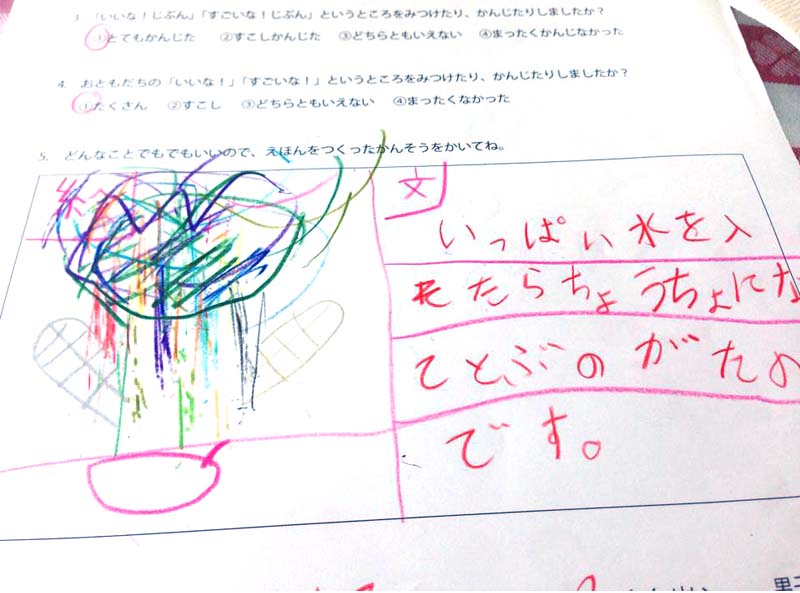 3. 「いいな!じぶん」「すごいな!じぶん」というところをみつけたり、かんじたりしましたか?
①とてもかんじた ②すこしかんじた ③どちらともいえない ④まったくかんじなかった
4. おともだちの「いいな!」「すごいな!」というところをみつけたり、かんじたりしましたか?
①たくさん ②すこし ③どちらともいえない ④まったくなかった
5. どんなことでもでもいいので、えほんをつくったかんそうをかいてね。
絵
文
いっぱい水を入
たらちょうちょにな
てとぶのがたの
です。